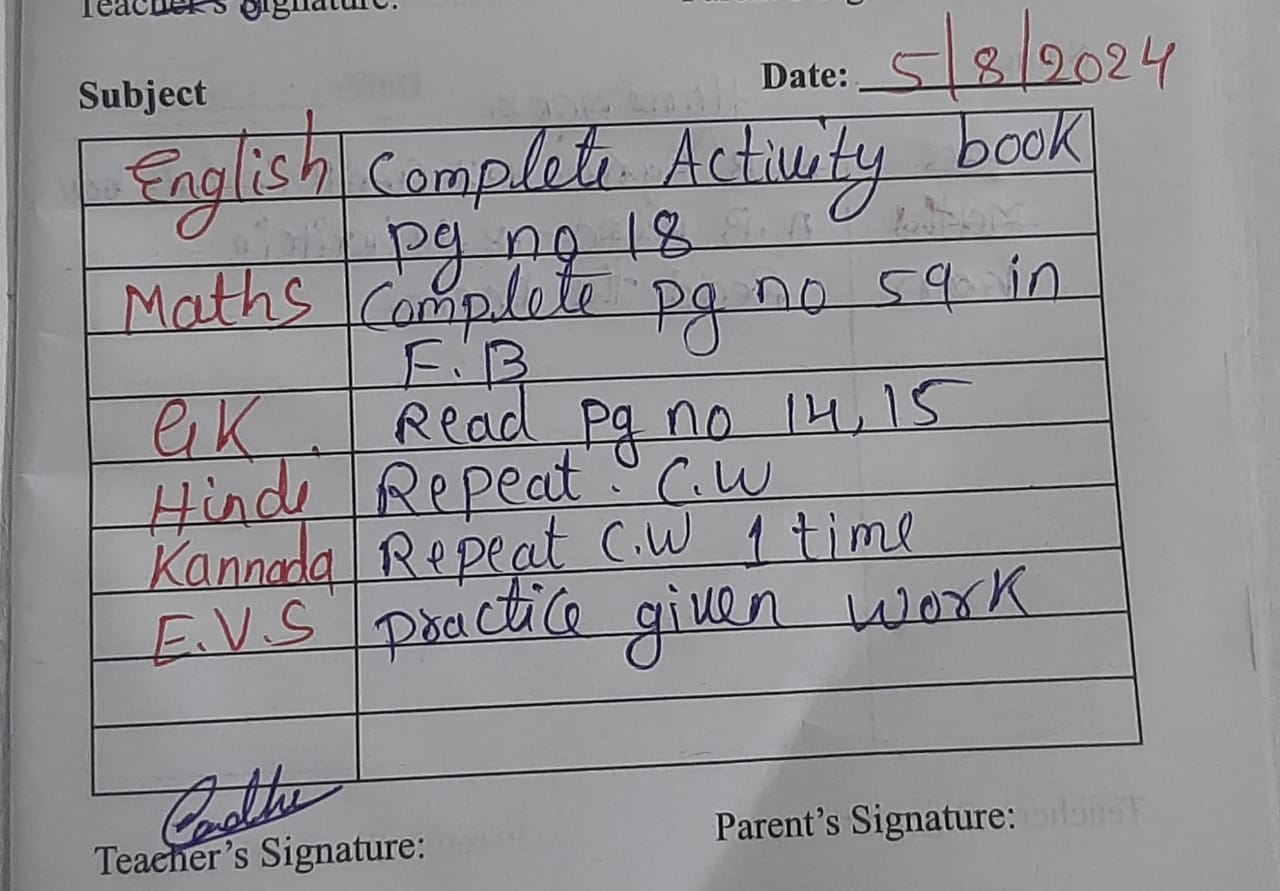 Teacher's Signature:
Date: 5/8/2024
Subject
English Complete Activity book
pg no 18
Maths Complete pg no 59 in
F.B
GK. Read pg no 14, 15
Hindi Repeat. C.W
Kannada Repeat C.W 1 time
E.V.S practice given work
Teacher's Signature:
Parent's Signature: